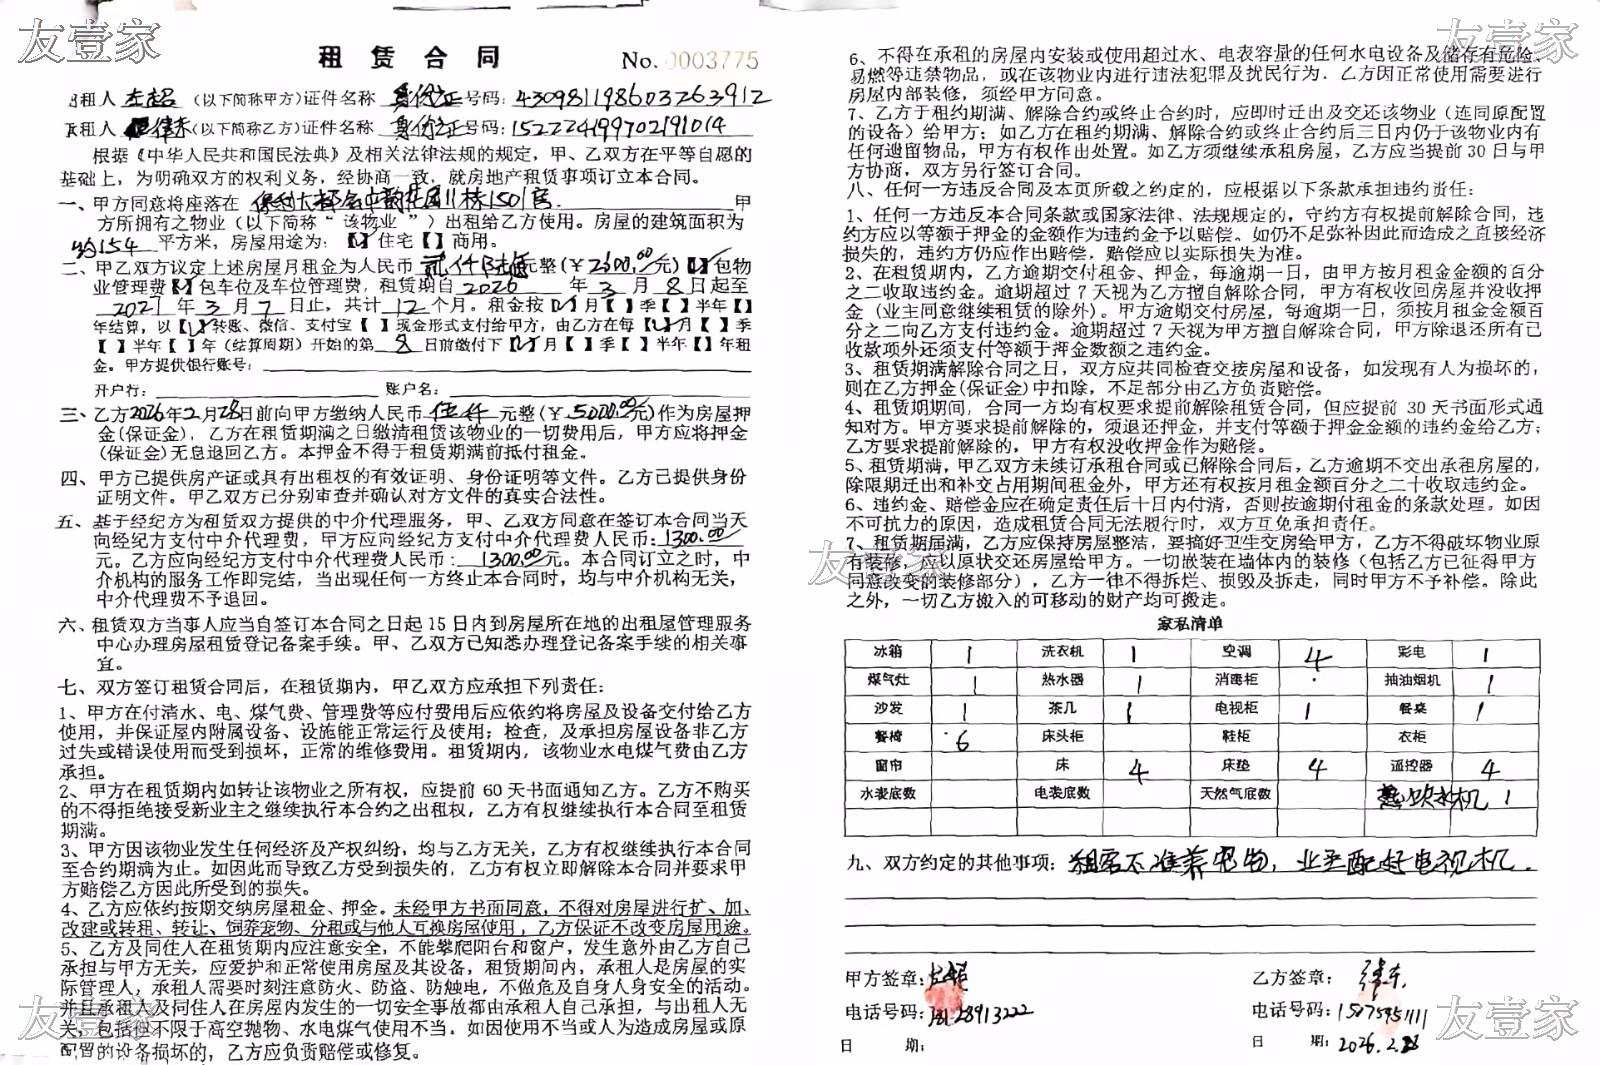 友壹家
友壹家
租赁合同 No. 0003775
出租人 左超 (以下简称甲方)证件名称 身份证号码: 430981198603263912
承租人 (以下简称乙方)证件名称 身份证号码: 152224199702191014
根据《中华人民共和国民法典》及相关法律法规的规定，甲、乙双方在平等自愿的
基础上，为明确双方的权利义务，经协商一致，就房地产租赁事项订立本合同。
一、甲方同意将座落在 保利大都会中韵花园11栋1501房 甲
方所拥有之物业（以下简称“该物业”）出租给乙方使用。房屋的建筑面积为
约154 平方米，房屋用途为：【✓】住宅【 】商用。
二、甲乙双方议定上述房屋月租金为人民币 元整(￥2600.00元)【✓】包物
业管理费【✓】包车位及车位管理费，租赁期自 2026 年 3 月 8 日起至
2027 年 3 月 7 日止，共计 12 个月。租金按【✓】月【 】季【 】半年【 】
年结算，以【✓】转账、微信、支付宝【 】现金形式支付给甲方，由乙方在每【✓】月【 】季
【 】半年【 】年（结算周期）开始的第 8 日前缴付下【✓】月【 】季【 】半年【 】年租
金。甲方提供银行账号：
开户行： 账户名：
三、乙方2026年2月28日前向甲方缴纳人民币 伍仟 元整(￥5000.00元)作为房屋押
金(保证金)，乙方在租赁期满之日缴清租赁该物业的一切费用后，甲方应将押金
(保证金)无息退回乙方。本押金不得于租赁期满前抵付租金。
四、甲方已提供房产证或具有出租权的有效证明、身份证明等文件。乙方已提供身份
证明文件。甲乙双方已分别审查并确认对方文件的真实合法性。
五、基于经纪方为租赁双方提供的中介代理服务，甲、乙双方同意在签订本合同当天
向经纪方支付中介代理费，甲方应向经纪方支付中介代理费人民币：1300.00
元。乙方应向经纪方支付中介代理费人民币： 1300.00元。本合同订立之时，中
介机构的服务工作即完结，当出现任何一方终止本合同时，均与中介机构无关，
中介代理费不予退回。
六、租赁双方当事人应当自签订本合同之日起 15 日内到房屋所在地的出租屋管理服务
中心办理房屋租赁登记备案手续。甲、乙双方已知悉办理登记备案手续的相关事
宜。
七、双方签订租赁合同后，在租赁期内，甲乙双方应承担下列责任：
1、甲方在付清水、电、煤气费、管理费等应付费用后应依约将房屋及设备交付给乙方
使用，并保证屋内附属设备、设施能正常运行及使用；检查，及承担房屋设备非乙方
过失或错误使用而受到损坏，正常的维修费用。租赁期内，该物业水电煤气费由乙方
承担。
2、甲方在租赁期内如转让该物业之所有权，应提前 60 天书面通知乙方。乙方不购买
的不得拒绝接受新业主之继续执行本合约之出租权，乙方有权继续执行本合同至租赁
期满。
3、甲方因该物业发生任何经济及产权纠纷，均与乙方无关，乙方有权继续执行本合同
至合约期满为止。如因此而导致乙方受到损失的，乙方有权立即解除本合同并要求甲
方赔偿乙方因此所受到的损失。
4、乙方应依约按期交纳房屋租金、押金。未经甲方书面同意，不得对房屋进行扩、加、
改建或转租、转让、饲养宠物、分租或与他人互换房屋使用，乙方保证不改变房屋用途。
5、乙方及同住人在租赁期内应注意安全，不能攀爬阳台和窗户，发生意外由乙方自己
承担与甲方无关，应爱护和正常使用房屋及其设备，租赁期间内，承租人是房屋的实
际管理人，承租人需要时刻注意防火、防盗、防触电，不做危及自身人身安全的活动。
并且承租人及同住人在房屋内发生的一切安全事故都由承租人自己承担，与出租人无
关，包括但不限于高空抛物、水电煤气使用不当．如因使用不当或人为造成房屋或原
配置的设备损坏的，乙方应负责赔偿或修复。
友壹家
6、不得在承租的房屋内安装或使用超过水、电表容量的任何水电设备及储存有危险、
易燃等违禁物品，或在该物业内进行违法犯罪及扰民行为．乙方因正常使用需要进行
房屋内部装修，须经甲方同意。
7、乙方于租约期满、解除合约或终止合约时，应即时迁出及交还该物业（连同原配置
的设备）给甲方；如乙方在租约期满、解除合约或终止合约后三日内仍于该物业内有
任何遗留物品，甲方有权作出处置。如乙方须继续承租房屋，乙方应当提前 30 日与甲
方协商，双方另行签订合同。
八、任何一方违反合同及本页所载之约定的，应根据以下条款承担违约责任：
1、任何一方违反本合同条款或国家法律、法规规定的，守约方有权提前解除合同，违
约方应以等额于押金的金额作为违约金予以赔偿。如仍不足弥补因此而造成之直接经济
损失的，违约方仍应作出赔偿．赔偿应以实际损失为准。
2、在租赁期内，乙方逾期交付租金、押金，每逾期一日，由甲方按月租金金额的百分
之二收取违约金。逾期超过 7 天视为乙方擅自解除合同，甲方有权收回房屋并没收押
金（业主同意继续租赁的除外）。甲方逾期交付房屋，每逾期一日，须按月租金金额百
分之二向乙方支付违约金。逾期超过 7 天视为甲方擅自解除合同，甲方除退还所有已
收款项外还须支付等额于押金数额之违约金。
3、租赁期满解除合同之日，双方应共同检查交接房屋和设备，如发现有人为损坏的，
则在乙方押金(保证金)中扣除，不足部分由乙方负责赔偿。
4、租赁期期间，合同一方均有权要求提前解除租赁合同，但应提前 30 天书面形式通
知对方。甲方要求提前解除的，须退还押金，并支付等额于押金金额的违约金给乙方；
乙方要求提前解除的，甲方有权没收押金作为赔偿。
5、租赁期满，甲乙双方未续订承租合同或已解除合同后，乙方逾期不交出承租房屋的，
除限期迁出和补交占用期间租金外，甲方还有权按月租金额百分之二十收取违约金。
6、违约金、赔偿金应在确定责任后十日内付清，否则按逾期付租金的条款处理。如因
不可抗力的原因，造成租赁合同无法履行时，双方互免承担责任。
7、租赁期届满，乙方应保持房屋整洁，要搞好卫生交房给甲方，乙方不得破坏物业原
有装修，应以原状交还房屋给甲方。一切嵌装在墙体内的装修（包括乙方已征得甲方
同意改变的装修部分），乙方一律不得拆烂、损毁及拆走，同时甲方不予补偿。除此
之外，一切乙方搬入的可移动的财产均可搬走。
友壹家
家私清单
冰箱 1 洗衣机 1 空调 4 彩电 1
煤气灶 1 热水器 1 消毒柜 抽油烟机 1
沙发 1 茶几 1 电视柜 1 餐桌 1
餐椅 6 床头柜 鞋柜 衣柜
窗帘 床 4 床垫 4 遥控器 4
水表底数 电表底数 天然气底数 热饮水机 1
九、双方约定的其他事项：租客不准养宠物，业主配好电视机．
甲方签章： 左超 乙方签章：
电话号码： 电话号码：
日 期： 日 期：2026.2.28
友壹家